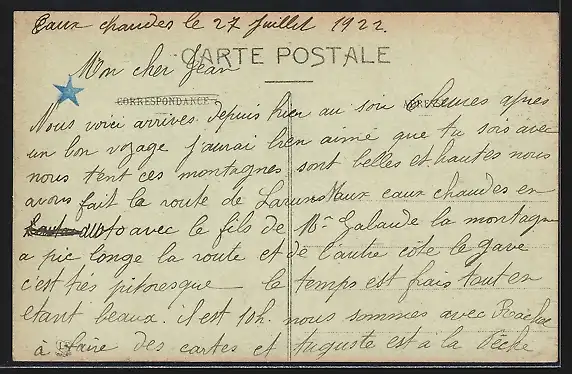 Eaux chaudes le 27 Juillet 1922.
CARTE POSTALE
Mon cher Jean
CORRESPONDANCE
Nous voici arrivés depuis hier au soir 6 heures après
un bon voyage j'aurai bien aimé que tu sois avec
nous tent ces montagnes sont belles et hautes nous
avons fait la route de Laruns aux eaux chaudes en
auto avec le fils de Mr Galaude la montagne
a pic longe la route et de l'autre côté le gave
c'est très pitoresque le temps est frais tout en
etant beaux. il est 10h. nous sommes avec Rachel
à faire des cartes et Auguste est à la Pêche